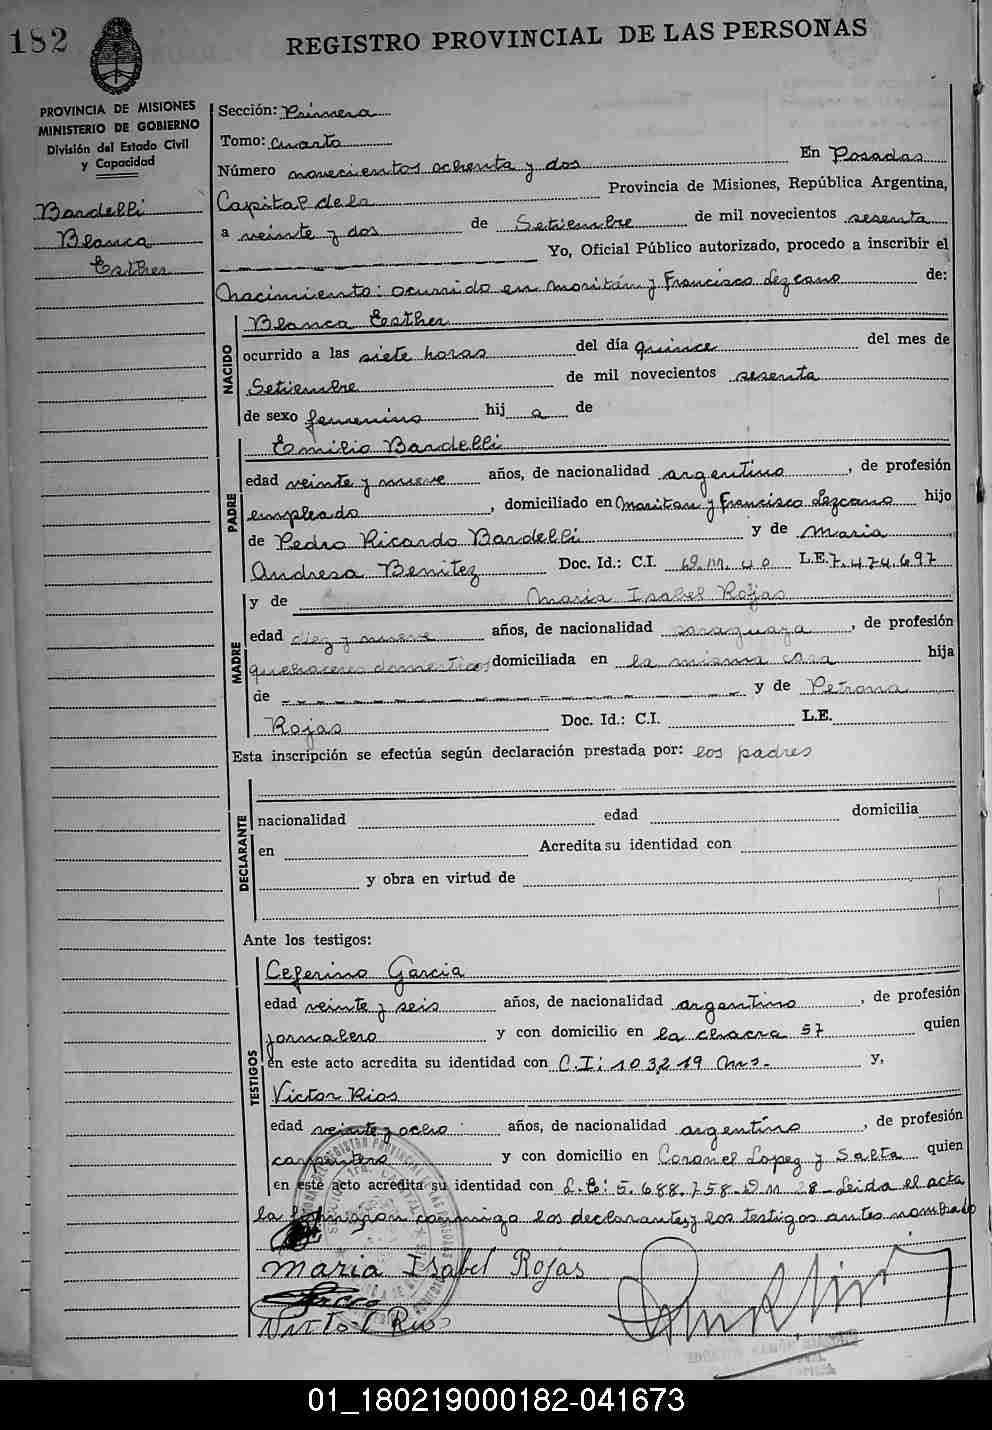 182
REGISTRO PROVINCIAL DE LAS PERSONAS
PROVINCIA DE MISIONES
MINISTERIO DE GOBIERNO
División del Estado Civil
y Capacidad
Bardelli
Blanca
Esther
Sección: Primera
Tomo: Cuarto
Número novecientos ochenta y dos En Posadas
Capital de la Provincia de Misiones, República Argentina,
a veinte y dos de Setiembre de mil novecientos sesenta
Yo, Oficial Público autorizado, procedo a inscribir el
Nacimiento: ocurrido en Moritán y Francisco Lezcano de:
NACIDO
Blanca Esther
ocurrido a las siete horas del día quince del mes de
Setiembre de mil novecientos sesenta
de sexo femenino hij a de
PADRE
Emilio Bardelli
edad veinte y nueve años, de nacionalidad argentino, de profesión
empleado, domiciliado en Moritan y Francisco Lezcano hijo
de Pedro Ricardo Bardelli y de Maria
Andresa Benitez Doc. Id.: C.I. D.M. 40 L.E. 7.474.697
MADRE
y de Maria Isabel Rojas
edad diez y nueve años, de nacionalidad paraguaya, de profesión
quehaceres domésticos domiciliada en la misma casa hija
de y de Petrona
Rojas Doc. Id.: C.I. L.E.
Esta inscripción se efectúa según declaración prestada por: los padres
DECLARANTE
nacionalidad edad domicilia
en Acredita su identidad con
y obra en virtud de
Ante los testigos:
TESTIGOS
Ceferino Garcia
edad veinte y seis años, de nacionalidad argentino, de profesión
jornalero y con domicilio en la chacra 57 quien
en este acto acredita su identidad con C.I: 103,219 Mns.- y,
Victor Rios
edad veinte y ocho años, de nacionalidad argentino, de profesión
carpintero y con domicilio en Coronel Lopez y Salta quien
en este acto acredita su identidad con L.E: 5.688.758. D M 28 - Leida el acta
la firman conmigo los declarantes y los testigos antes nombrado
Maria Isabel Rojas
Victor Rios
01_180219000182-041673